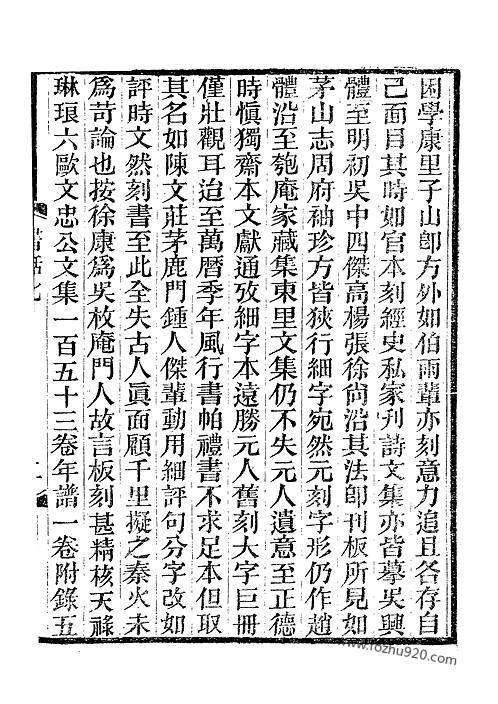 困學康里子山卽方外如伯雨輩亦刻意力追且各存自
己面目其時如官本刻經史私家刊詩文集亦皆摹吳興
體至明初吳中四傑高楊張徐尙沿其法卽刊板所見如
茅山志周府袖珍方皆狹行細字宛然元刻字形仍作趙
體沿至匏庵家藏集東里文集仍不失元人遺意至正德
時愼獨齋本文獻通攷細字本遠勝元人舊刻大字巨冊
僅壯觀耳迨至萬曆季年風行書帕禮書不求足本但取
其名如陳文莊茅鹿門鍾人傑輩動用細評句分字改如
評時文然刻書至此全失古人眞面顧千里擬之秦火未
爲苛論也按徐康爲吳枚庵門人故言板刻甚精核天祿
琳琅六歐文忠公文集一百五十三卷年譜一卷附錄五
www.fozhu920.com